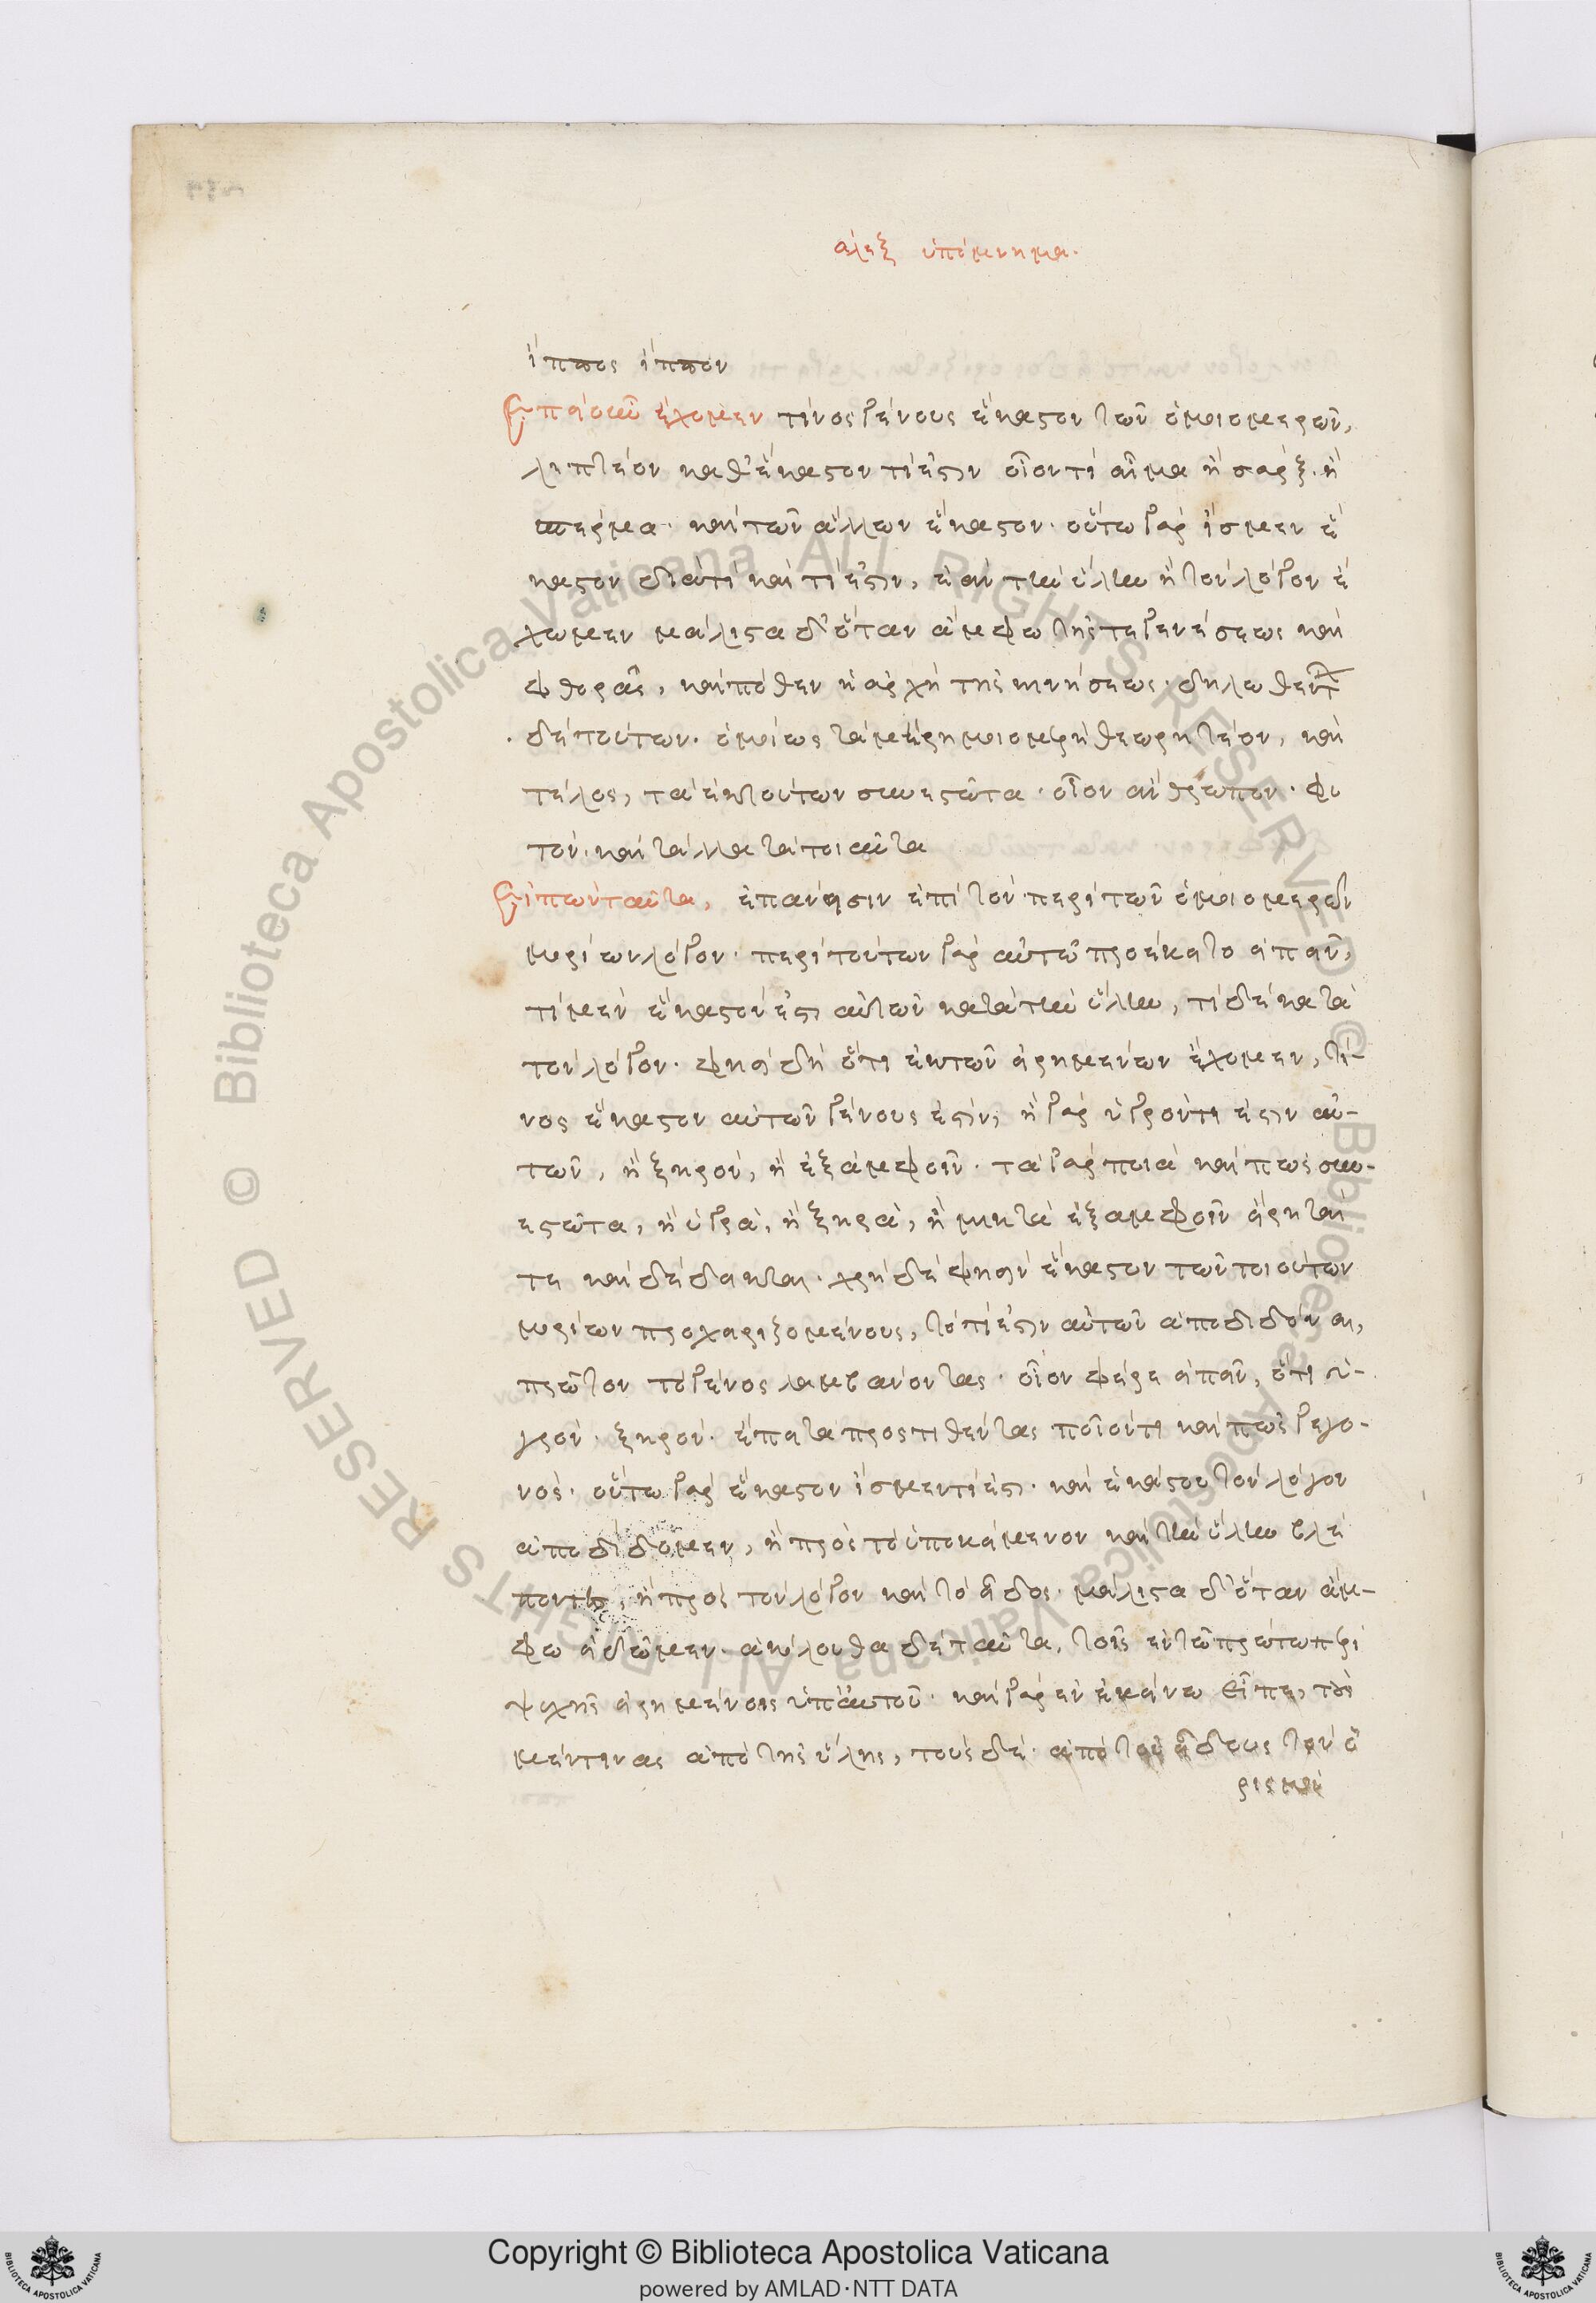 αλεξ ὑπόμνημα.
ἵππος ἵππον
Ἐπεὶ οὖν ἔχομεν τίνος γένους ἕκαστον τῶν ὁμοιομερῶν,
ληπτέον καθ' ἕκαστον τί ἐστιν οἷον τί αἷμα ἢ σάρξ. ἢ
σπέρμα. καὶ τῶν ἄλλων ἕκαστον. οὕτω γὰρ ἴσμεν ἕ
καστον διατί καὶ τί ἐστιν, ἐὰν τὴν ὕλην ἢ τὸν λόγον ἔ
χωμεν μάλιστα δ' ὅταν ἄμφω τῆς τε γενέσεως καὶ
φθορᾶς, καὶ πόθεν ἡ ἀρχὴ τῆς κινήσεως. δηλωθέντ
δὲ τούτων. ὁμοίως τὰ μὲν ἀνομοιομερῆ θεωρητέον, καὶ
τέλος, τὰ ἐκ τούτων συνεστῶτα. οἷον ἄνθρωπον. φυ
τόν. καὶ τἄλλα τὰ τοιαῦτα
Εἰπὼν ταῦτα, ἐπάνεισιν ἐπὶ τὸν περὶ τῶν ὁμοιομερῶν
μορίων λόγον. περὶ τούτων γὰρ αὐτῷ προέκειτο εἰπεῖν,
τί μὲν ἕκαστόν ἐστι αὐτῶν κατὰ τὴν ὕλην, τί δὲ κατὰ
τὸν λόγον. φησὶ δὴ ὅτι ἐκ τῶν εἰρημένων ἔχομεν, τί-
νος ἕκαστον αὐτῶν γένους ἐστίν, ἢ γὰρ ὑγρόν τι ἐστιν αὐ-
τῶν, ἢ ξηρόν, ἢ ἐξ ἀμφοῖν. τὰ γὰρ ποιὰ καὶ πῶς συν-
εστῶτα, ἢ ὑγρὰ, ἢ ξηρὰ, ἢ μικτὰ ἐξ ἀμφοῖν εἴρηταί
τε καὶ δέδεικται. χρὴ δέ φησιν ἕκαστον τῶν τοιούτων
μορίων προχειριζομένους, τὸ τί ἐστιν αὐτῶν ἀποδιδόναι,
πρῶτον τὸ γένος λαμβάνοντας. οἷον φέρε εἰπεῖν, ὅτι ὑ-
γρόν. ξηρόν. ἔπειτα προστιθέντας ποῖόν τι καὶ πῶς γεγο-
νός. οὕτω γὰρ ἕκαστον ἴσμεν τί ἐστι. καὶ ἑκάστου τὸν λόγον
ἀποδίδομεν, ἢ πρὸς τὸ ὑποκείμενον καὶ τὴν ὕλην βλέ
ποντες, ἢ πρὸς τὸν λόγον καὶ τὸ εἶδος. μάλιστα δ' ὅταν ἄμ-
φω εἰδῶμεν. ἀκόλουθα δὲ ταῦτα, τοῖς ἐν τῷ πρώτῳ περὶ
ψυχῆς εἰρημένοις ὑπ' αὐτοῦ. καὶ γὰρ ἐν ἐκείνῳ εἶπε, τοὺς
μέν τινας ἀπὸ τῆς ὕλης, τοὺς δὲ ἀπὸ τοῦ εἴδους τὸν ὁ
ρισμὸν
Copyright © Biblioteca Apostolica Vaticana
powered by AMLAD·NTT DATA